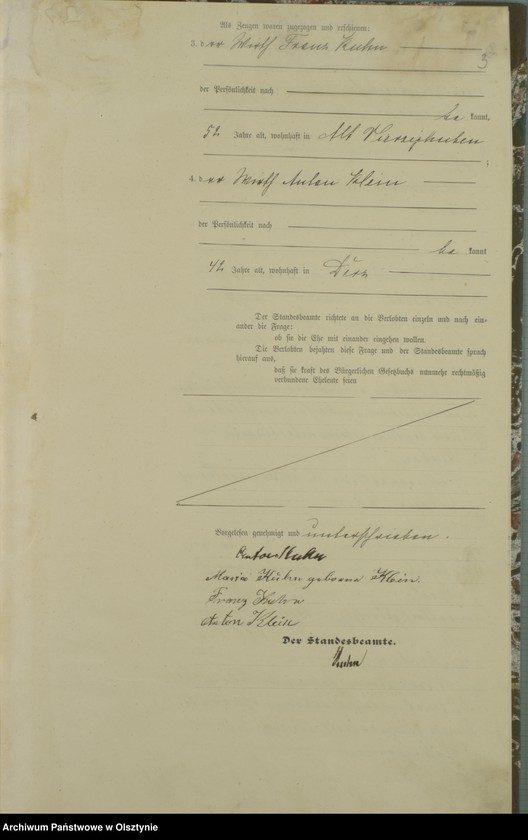 Als Zeugen waren zugezogen und erschienen:
3. der Wirth Franz Kuhn
3
der Persönlichkeit nach
be kannt,
52 Jahre alt, wohnhaft in Alt Vierzighuben
;
4. der Wirth Anton Klein
der Persönlichkeit nach
be kannt
42 Jahre alt, wohnhaft in
Der Standesbeamte richtete an die Verlobten einzeln und nach ein-
ander die Frage:
ob sie die Ehe mit einander eingehen wollen.
Die Verlobten bejahten diese Frage und der Standesbeamte sprach
hierauf aus,
daß sie kraft des Bürgerlichen Gesetzbuchs nunmehr rechtmäßig
verbundene Eheleute seien
Vorgelesen genehmigt und unterschrieben.
Anton Kuhn
Maria Kuhn geborene Klein.
Franz Kuhn
Anton Klein
Der Standesbeamte.
Kuhn
Archiwum Państwowe w Olsztynie